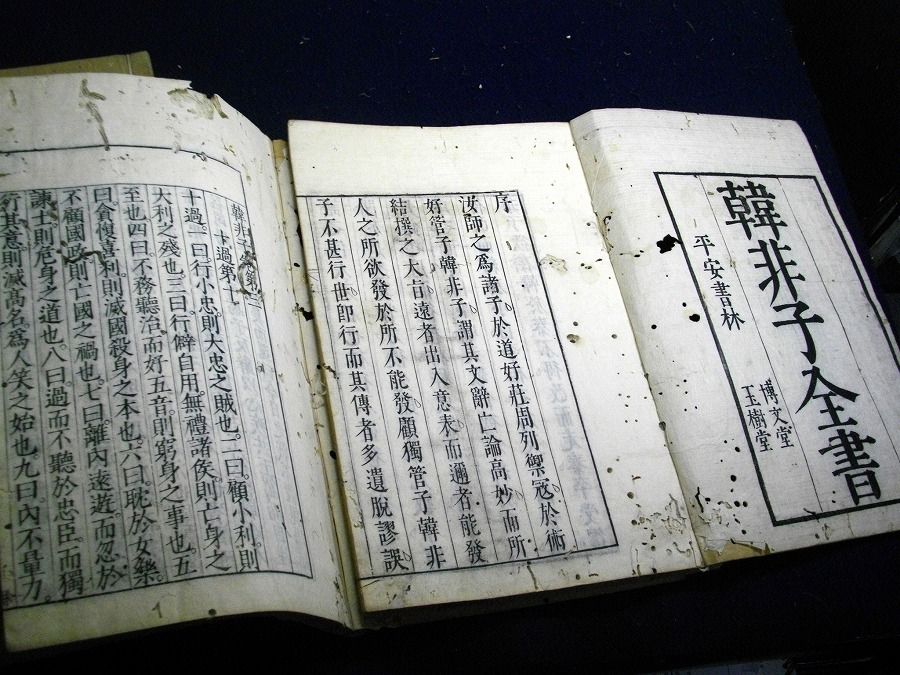 韓非子全書
平安書林
博文堂
玉樹堂
序
汝師之爲諸子於道好莊周列禦冦於術
好管子韓非子謂其文辭亡論高妙而所
結撰之大㫖遠者出入意表而邇者能發
人之所欲發於所不能發顧獨管子韓非
子不甚行世卽行而其傳者多遺脫謬誤
韓非子卷第三
十過第十
十過。一曰行小忠。則大忠之賊也。二曰。顧小利。則
大利之殘也。三曰。行僻自用。無禮諸侯。則亡身之
至也。四曰。不務聽治。而好五音。則窮身之事也。五
曰。貪愎喜利。則滅國殺身之本也。六曰。耽於女樂。
不顧國政。則亡國之禍也。七曰。離內遠遊。而忽於
諫士。則危身之道也。八曰。過而不聽於忠臣。而獨
行其意。則滅高名。爲人笑之始也。九曰。內不量力。